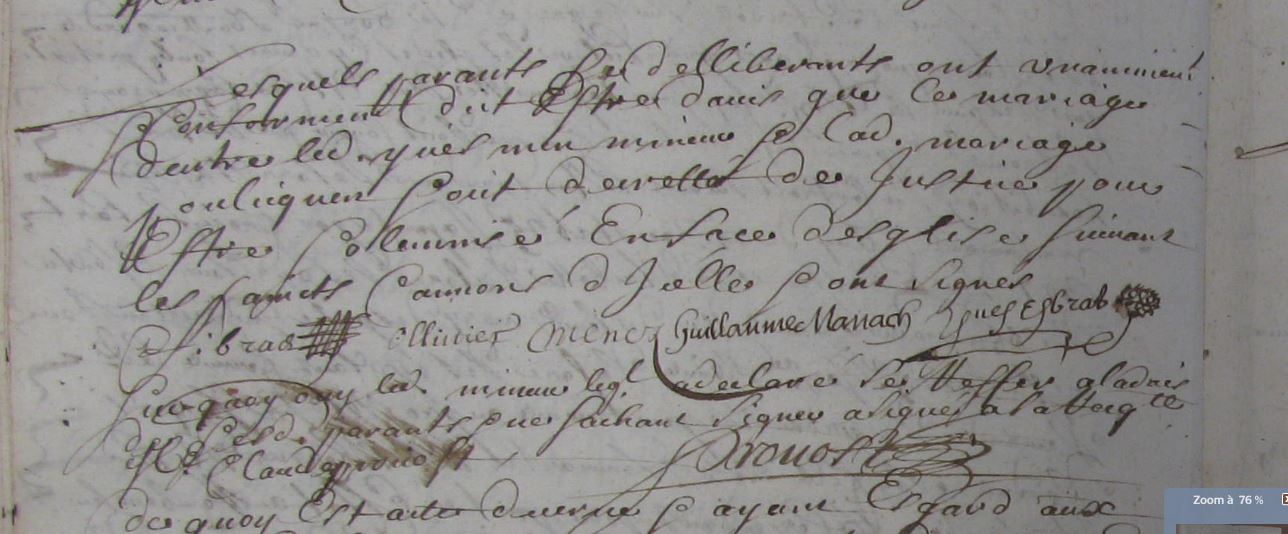 Lesquels parants & delliberants ont unaniment
Conforment dit Estre davis que Le mariage
dentre led. yues mineur & lad. mariage
pouliquen soit decretté de Justice pour
Estre solemnisé En face desglise suivant
les saincts Cannons d Icelle & ont signes
Esibras ollivier menez Guillaume Manach yues Esbrab
Surquoy ouy led. mineur leql a declare se Reffer a ladvis
desd. parants & ne sachant signer a signer a sa Requte
Me Claude provost Provost
de quoy Est acte decerné & ayant Esgard aux
Zoom à 76 %